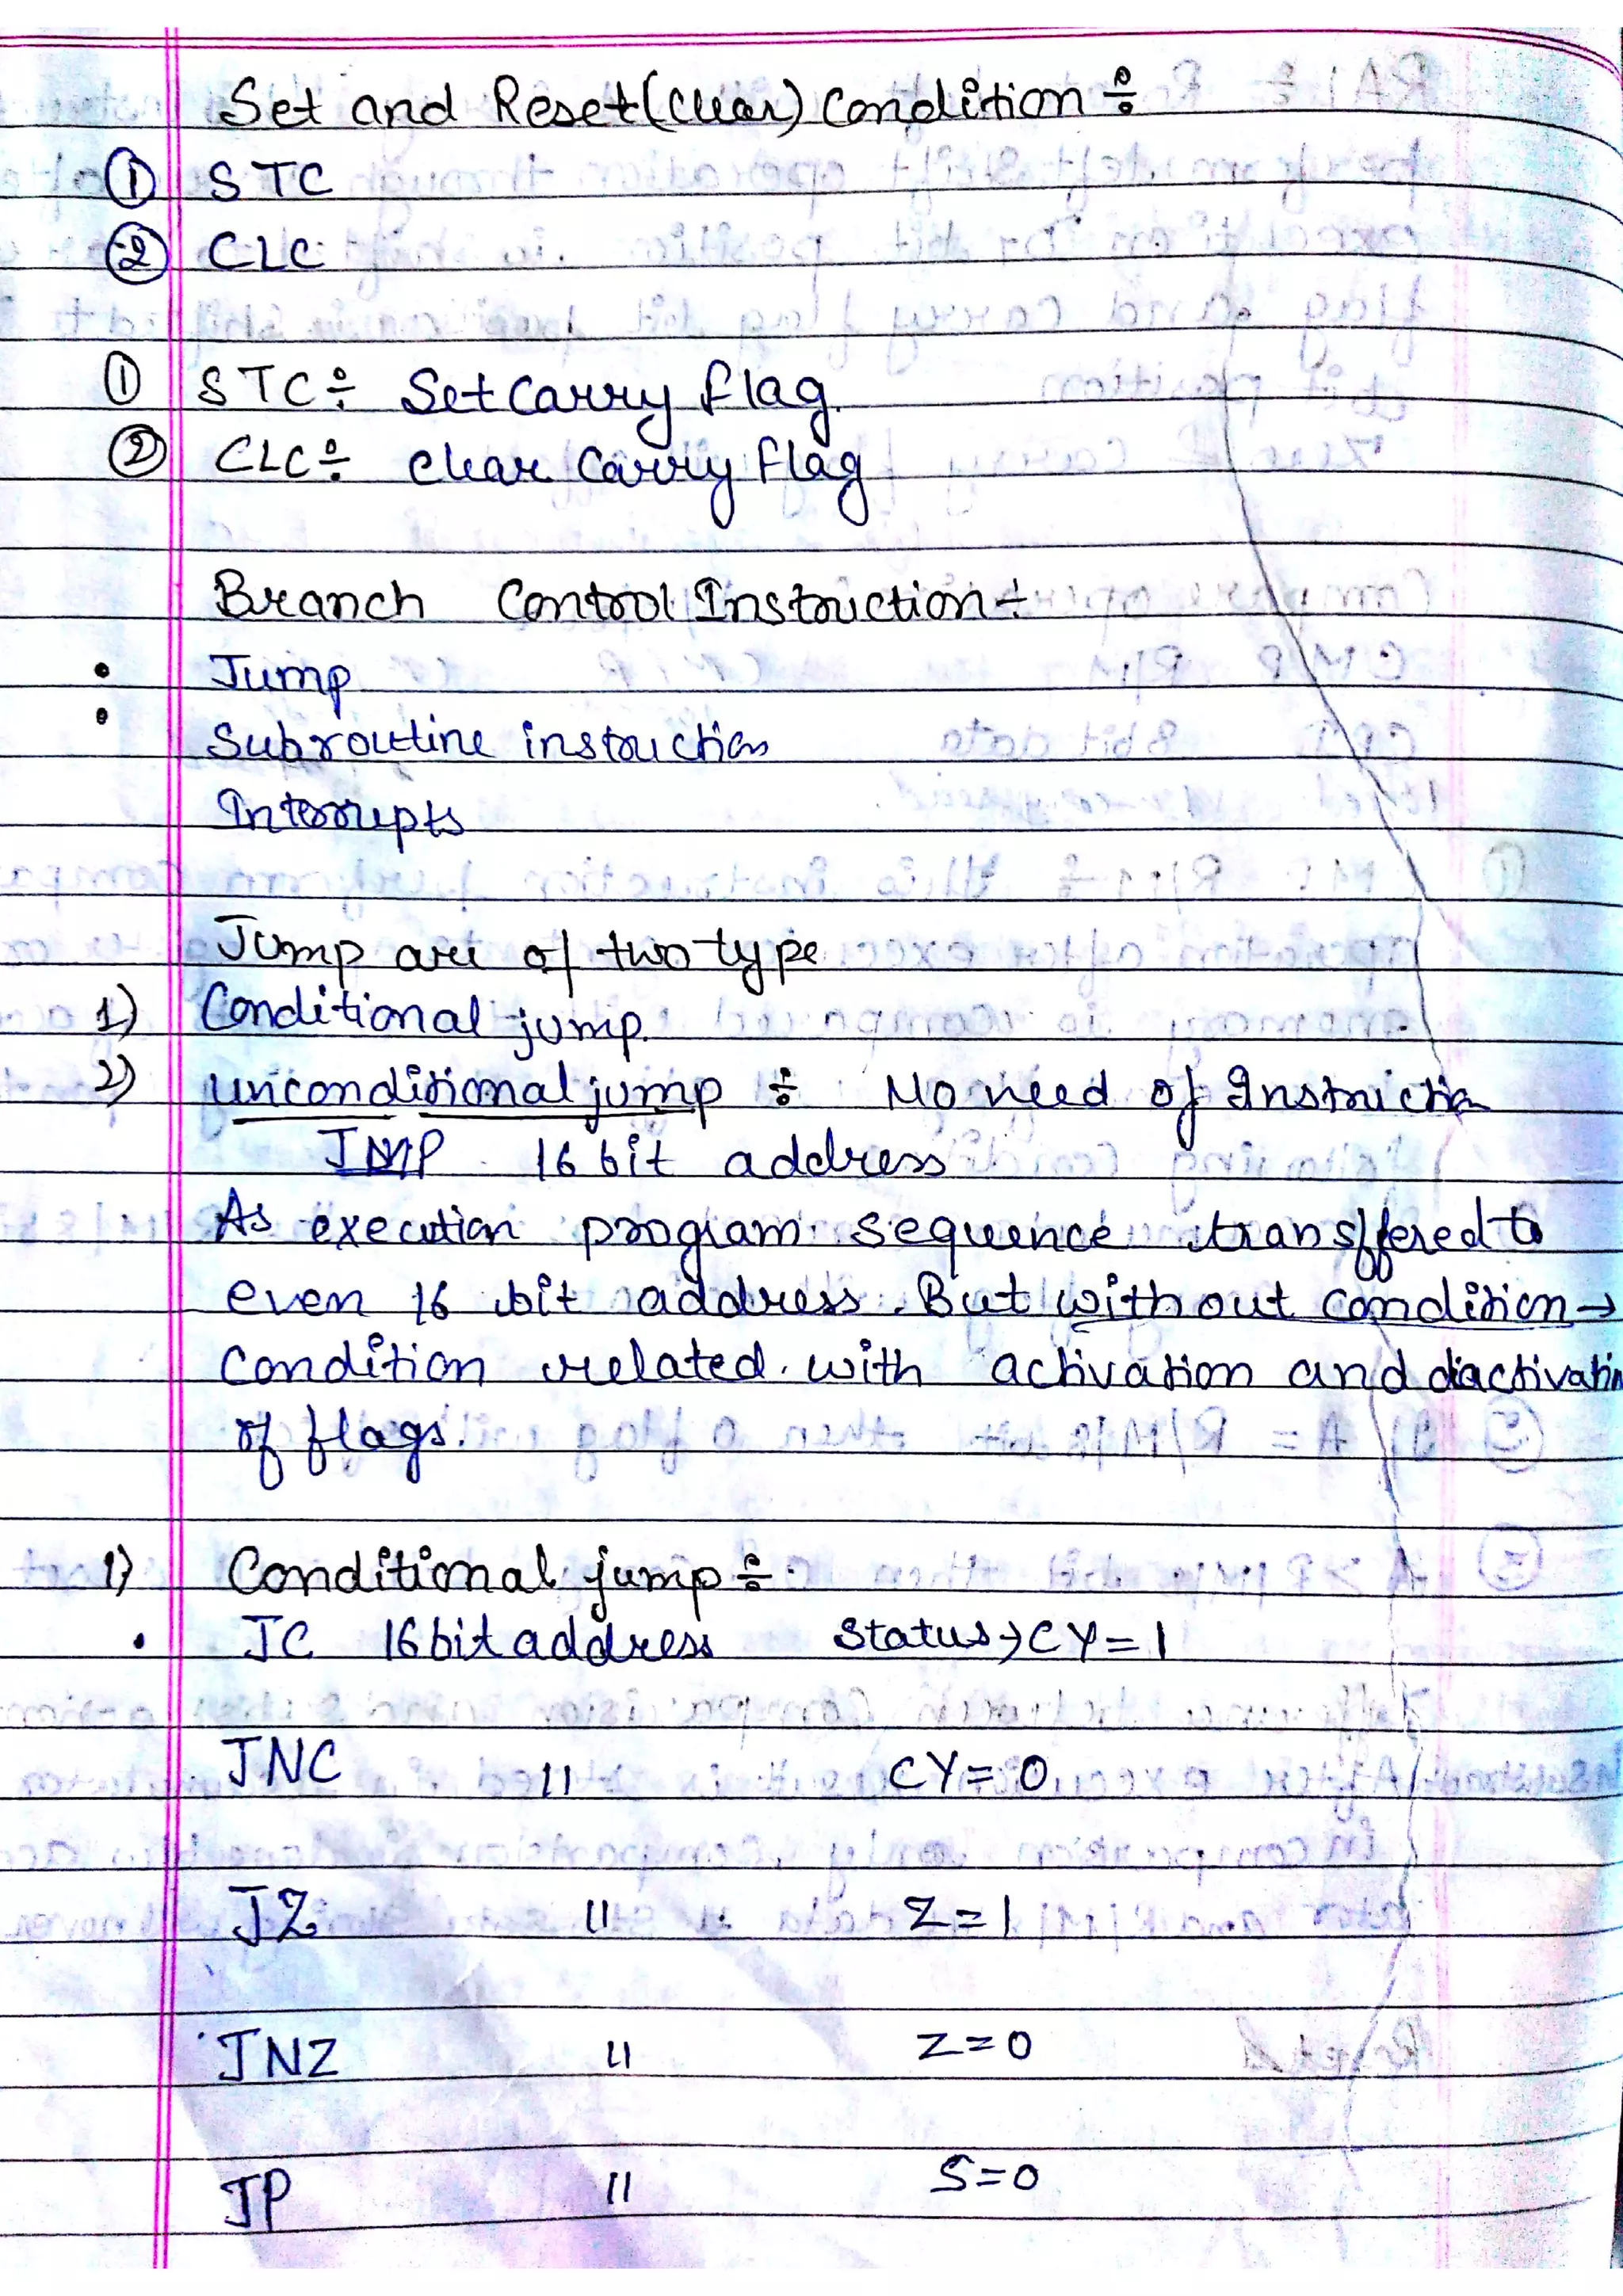 Set and Reset(Clear) Condition ÷
① STC
② CLC
① STC ÷ Set Carry flag.
② CLC ÷ Clear Carry flag
Branch Control Instruction ÷
• Jump
• Subroutine instruction
Interrupts
Jump are of two type
1) Conditional jump.
2) unconditional jump ÷ No need of Instruction
JMP 16 bit address
As execution program sequence transffered to
even 16 bit address. But without condition →
condition related with activation and diactivation
of flags.
1) Conditional jump ÷
• JC 16 bit address Status → CY = 1
JNC 11 CY = 0
JZ 11 Z = 1
JNZ 11 Z = 0
JP 11 S = 0